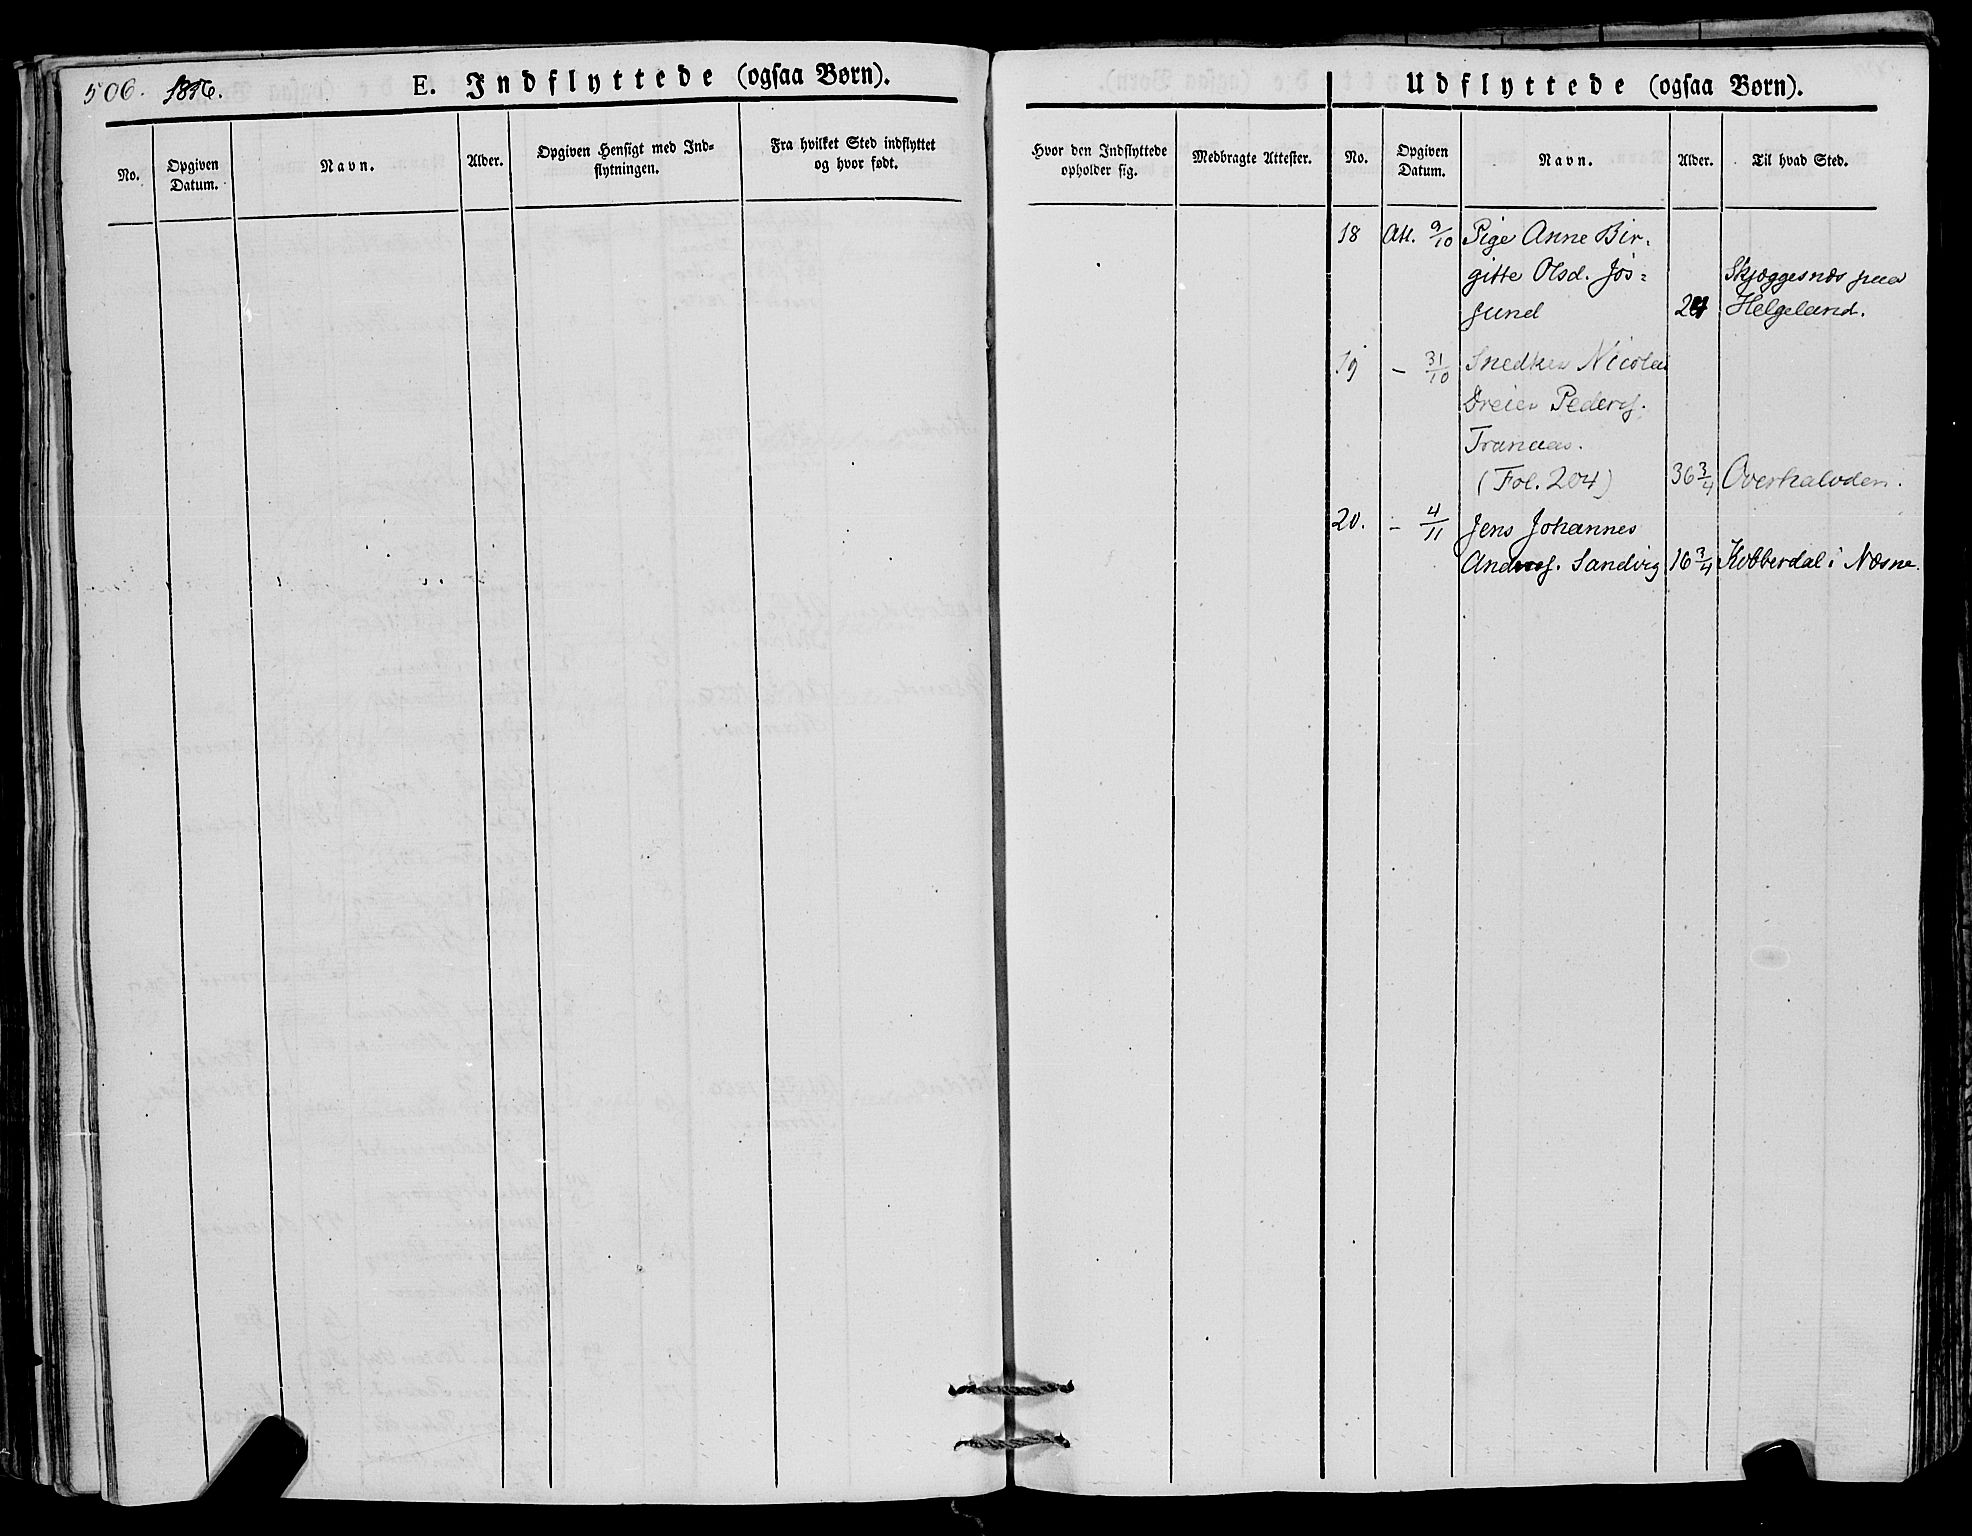 506. 1856.
E. Indflyttede (ogsaa Børn).
No.
Opgiven
Datum.
Navn.
Alder.
Opgiven Hensigt med Ind=
flytningen.
Fra hvilket Sted indflyttet
og hvor født.
Hvor den Indflyttede
opholder sig.
Medbragte Attester.
Udflyttede (ogsaa Børn).
No.
Opgiven
Datum.
Navn.
Alder.
Til hvad Sted.
18 Att. 9/10 Pige Anne Bir-
gitte Olsd. Jøs=
sund 24 Skjæggesnæs paa
Helgeland.
19 – 31/10 Snedker Nicolai
Dreier Peders.
Tranaas.
(Fol. 204) 36 3/4 Overhalvden.
20. – 4/11 Jens Johannes
Anders. Sandvig 16 3/4 Kobberdal i Næsne.